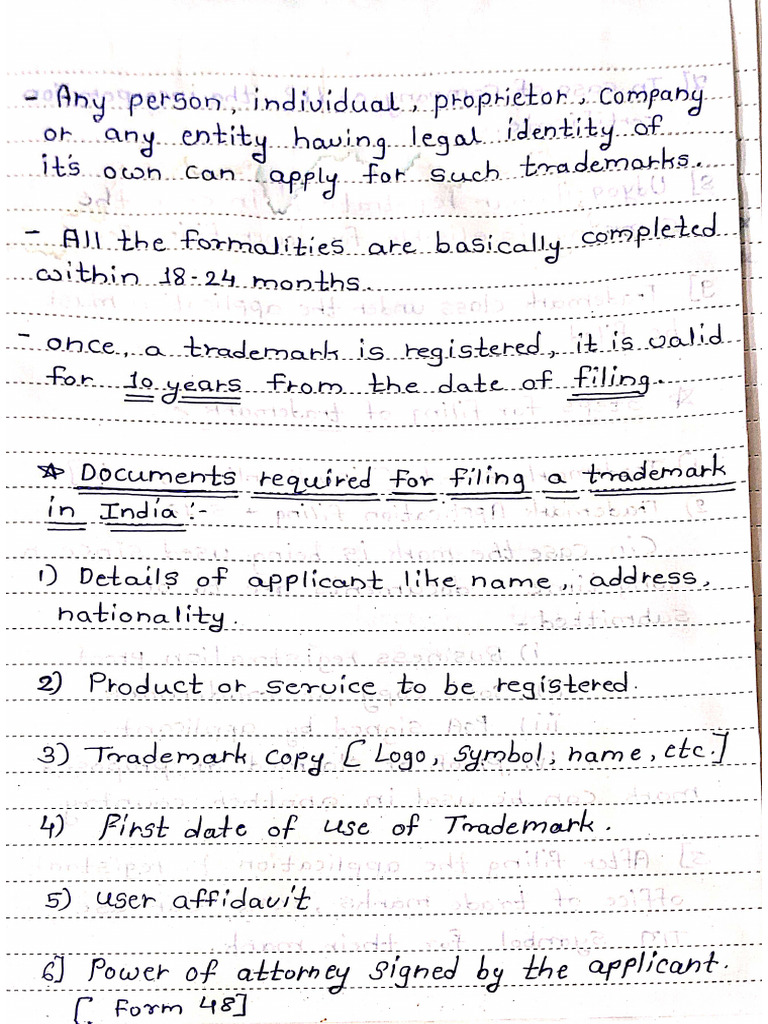 - Any person, individual, proprietor, Company
or any entity having legal identity of
it's own can apply for such trademarks.
- All the formalities are basically completed
within 18-24 months.
- once, a trademark is registered, it is valid
for 10 years from the date of filing.
☆ Documents required for filing a trademark
in India:-
1) Details of applicant like name, address,
nationality.
2) Product or service to be registered.
3) Trademark copy [Logo, symbol, name, etc.]
4) First date of use of Trademark.
5) user affidavit.
6] Power of attorney signed by the applicant.
[. Form 48]